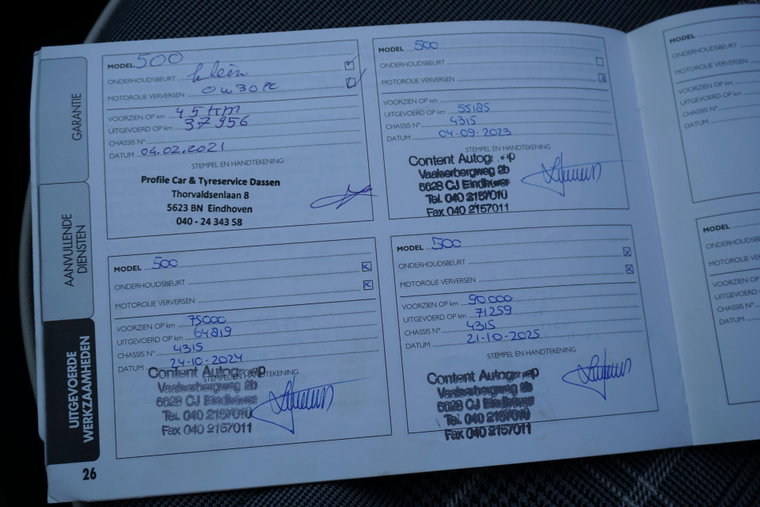 GARANTIE
AANVULLENDE
DIENSTEN
UITGEVOERDE
WERKZAAMHEDEN
26
MODEL 500
ONDERHOUDSBEURT klein
MOTOROLIE VERVERSEN 0W30 PC
VOORZIEN OP km 45 tkm
UITGEVOERD OP km 37956
CHASSIS N°
DATUM 04.02.2021
STEMPEL EN HANDTEKENING
Profile Car & Tyreservice Dassen
Thorvaldsenlaan 8
5623 BN Eindhoven
040 - 24 343 58
MODEL 500
ONDERHOUDSBEURT
MOTOROLIE VERVERSEN
VOORZIEN OP km
UITGEVOERD OP km 55185
CHASSIS N° 4315
DATUM 04-09-2023
STEMPEL EN HANDTEKENING
Content Autogroep
Vaalserbergweg 2b
5628 CJ Eindhoven
Tel. 040 2157010
Fax 040 2157011
MODEL 500
ONDERHOUDSBEURT
MOTOROLIE VERVERSEN
VOORZIEN OP km 75000
UITGEVOERD OP km 64819
CHASSIS N° 4315
DATUM 24-10-2024
STEMPEL EN HANDTEKENING
Content Autogroep
Vaalserbergweg 2b
5628 CJ Eindhoven
Tel. 040 2157010
Fax 040 2157011
MODEL 500
ONDERHOUDSBEURT
MOTOROLIE VERVERSEN
VOORZIEN OP km 90.000
UITGEVOERD OP km 71259
CHASSIS N° 4315
DATUM 21-10-2025
STEMPEL EN HANDTEKENING
Content Autogroep
Vaalserbergweg 2b
5628 CJ Eindhoven
Tel. 040 2157010
Fax 040 2157011
MODEL
ONDERHOUDSBEURT
MOTOROLIE VERVERSEN
VOORZIEN OP km
UITGEVOERD OP km
CHASSIS N°
DATUM
MODEL
ONDERHOUDSBEURT
MOTOROLIE VERVERSEN
VOORZIEN OP km
UITGEVOERD OP km
CHASSIS N°
DATUM